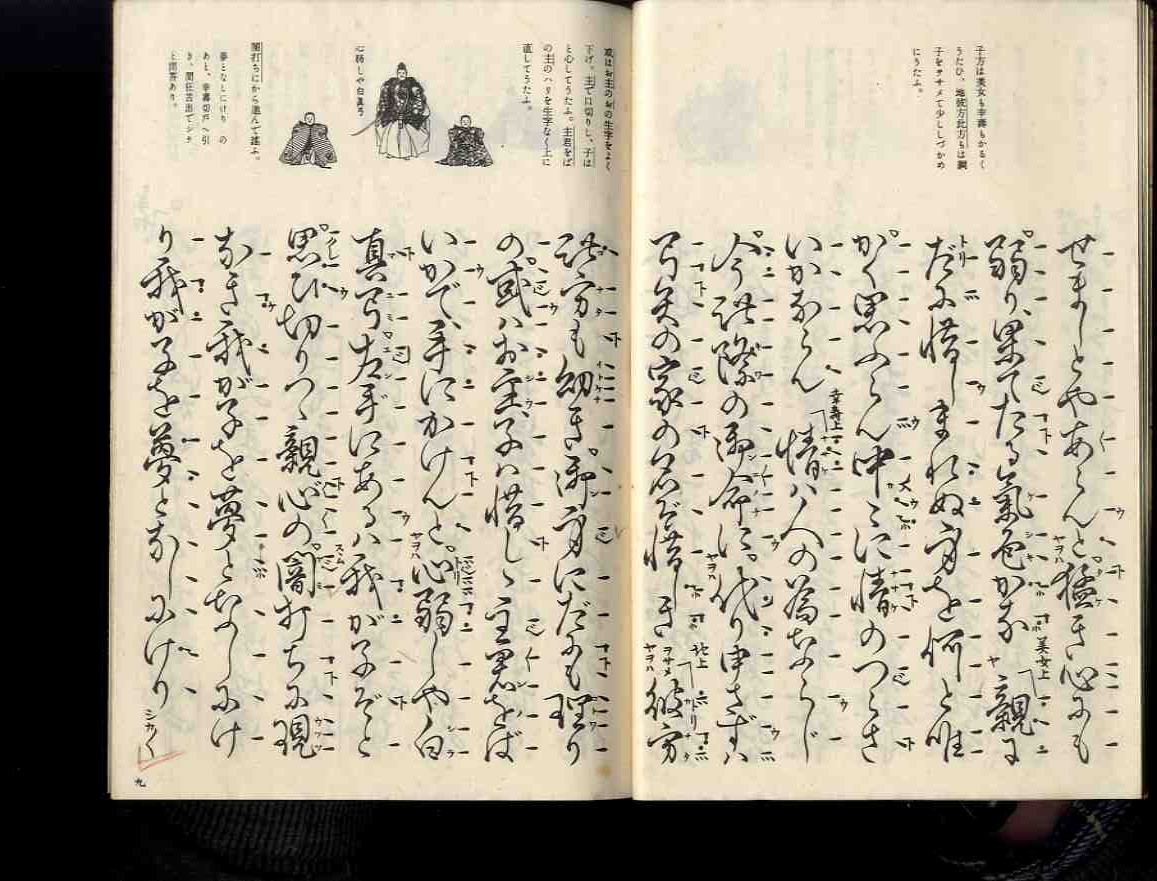 子方は美女も幸壽もかるく
うたひ、地彼方此方もは調
子をヲサメて少ししづかめ
にうたふ。
せましとやあらんと。猛き心にも
弱り果てたる氣色かな
美女上
親に
だに惜しまれぬ身を何と唯
かく思ふらん中々に情のつらさ
いかならん
幸壽上
情は人の為ならじ
今此際の御命に。代り申さずは
弓矢の家の名ぞ惜しき
地上
彼方
下げ。主で口切りし、子は
と心してうたふ。主君をば
の主のハリを生字なく上に
直してうたふ。
心弱しや白眞弓
闇打ちにから進んで謠ふ。
夢となしにけり の
あと、幸壽切戸へ引
き、間狂言出でシテ
と問答あり。
此方も幼き御身にだにも理り
の或はお主。子は惜しゝ主君をば
いかで手にかけんと。心弱しや白
真弓左手にあるは我が子ぞと
思ひ切りつゝ親心の。闇打ちに現
なき我が子を夢となしにけ
り我が子を夢となしにけり
シカ〳〵
九